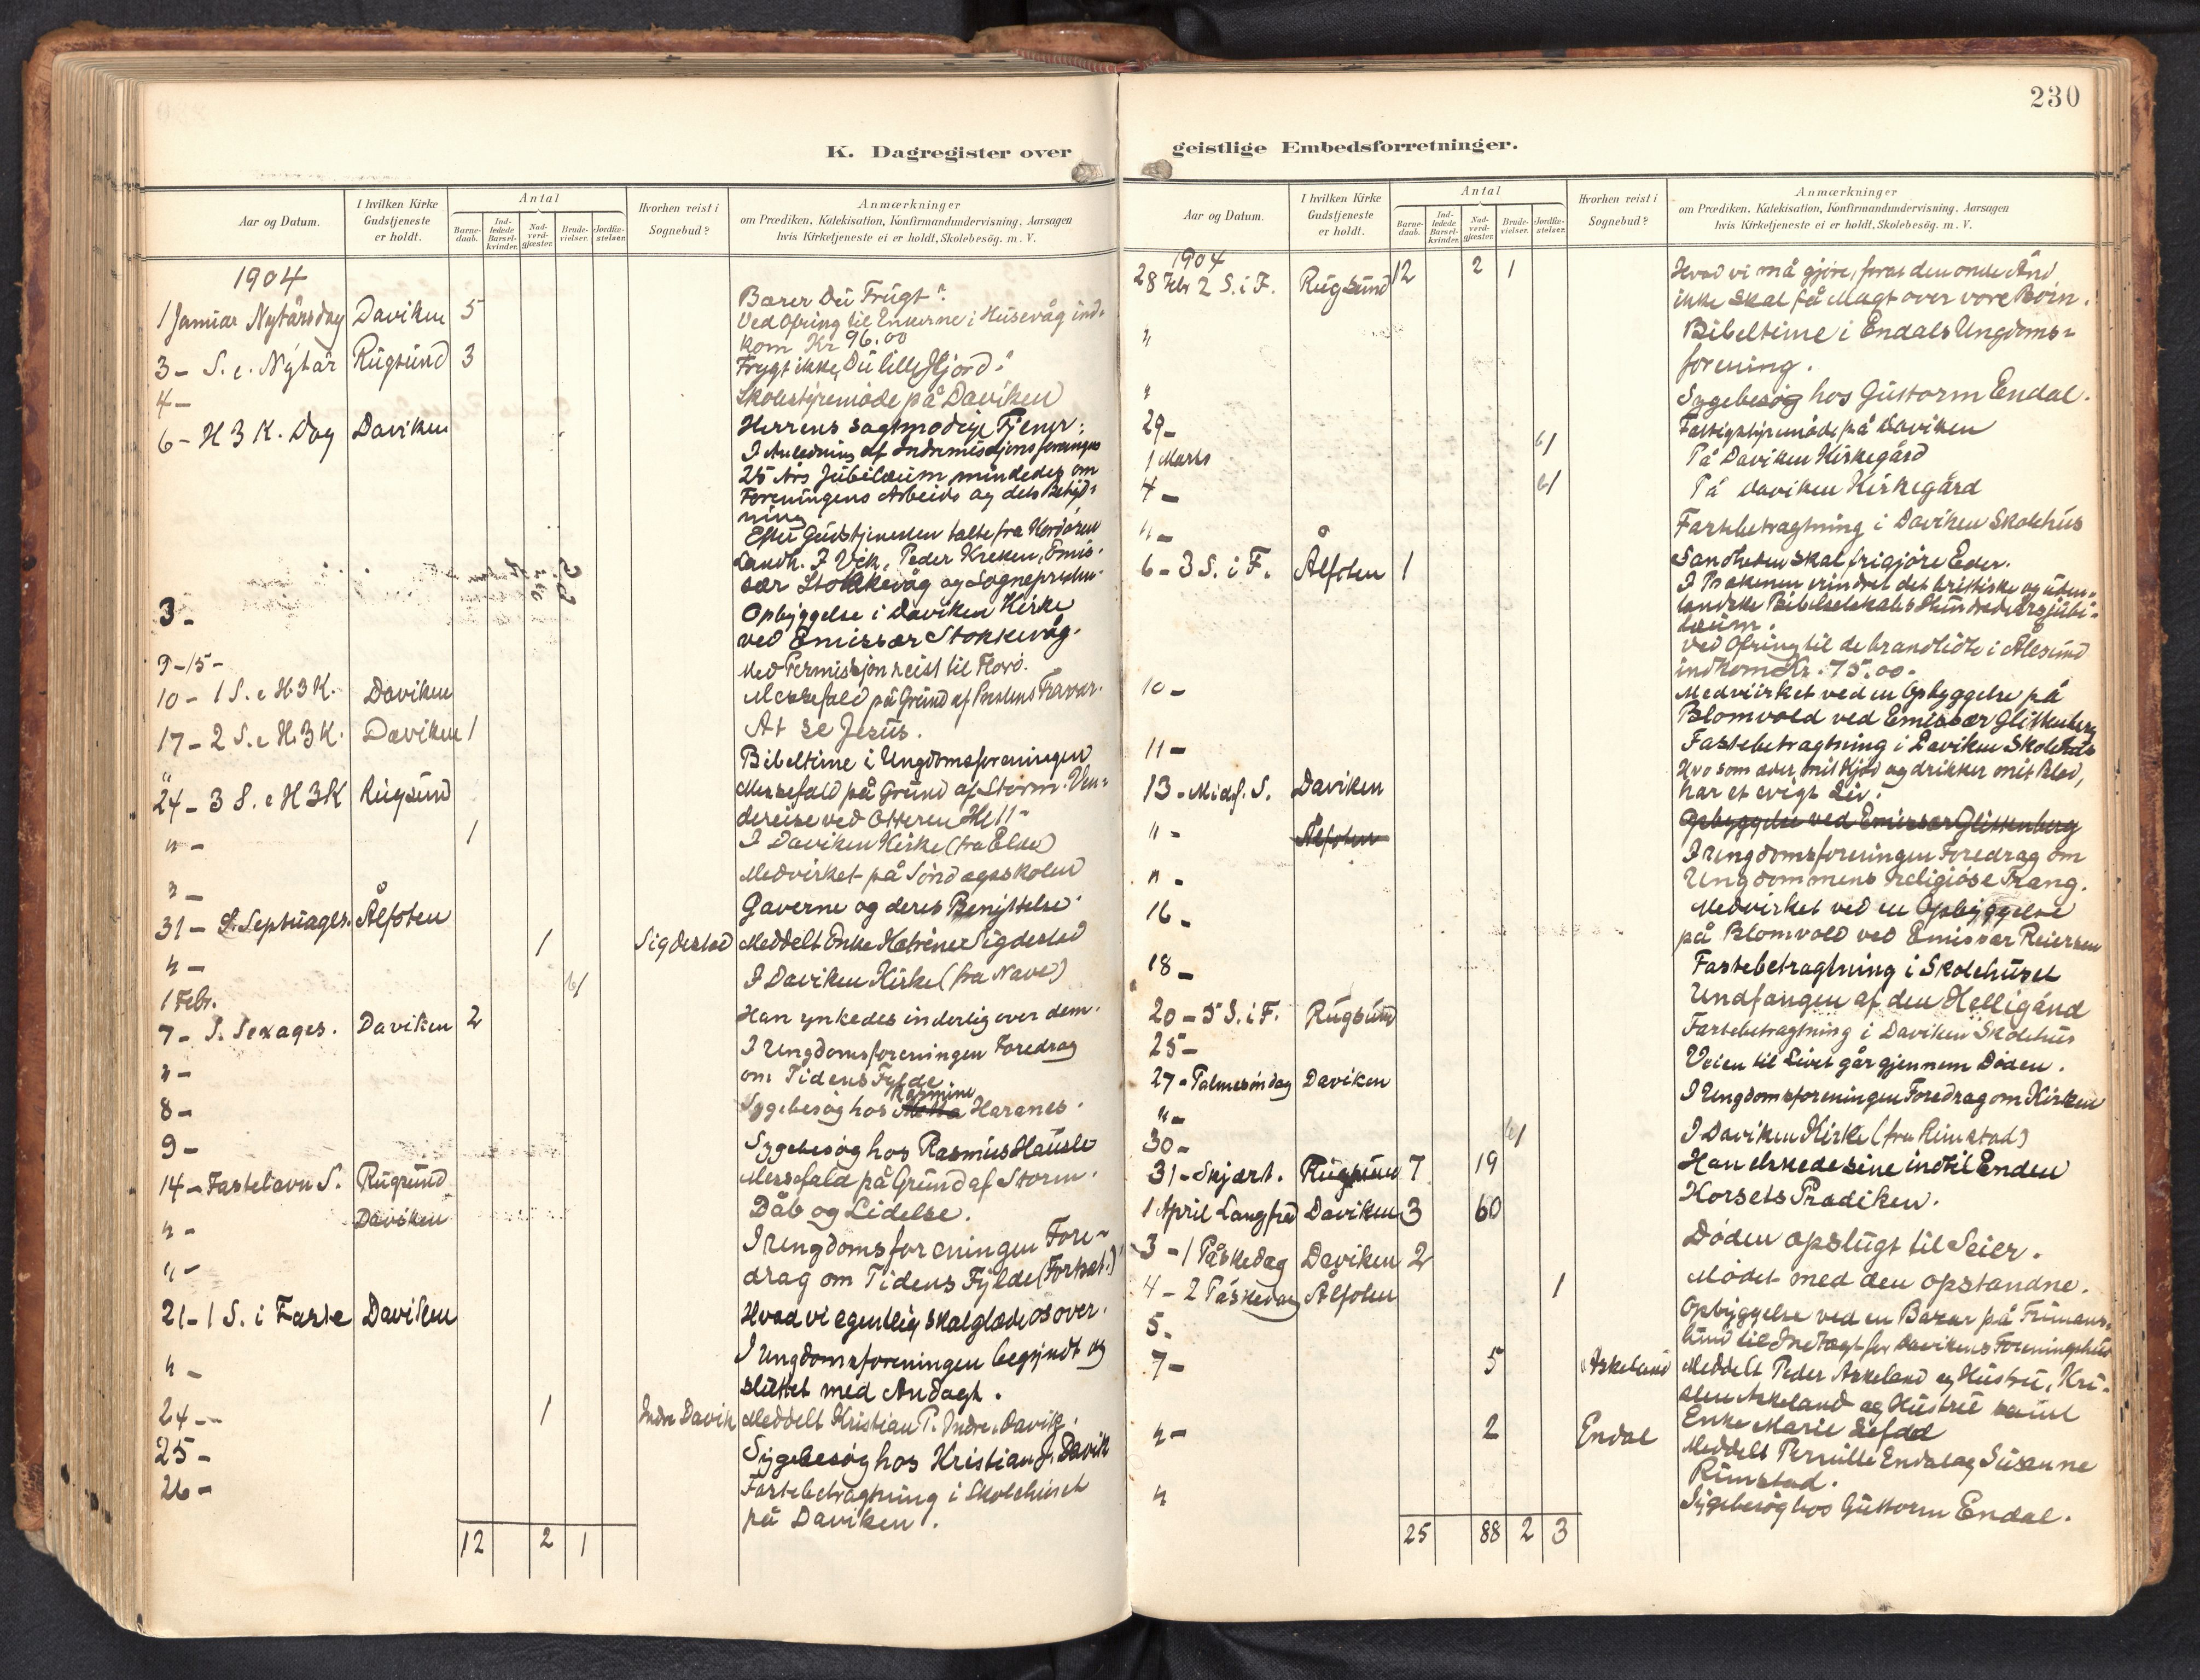 K. Dagregister over
Aar og Datum.
I hvilken Kirke
Gudstjeneste
er holdt.
Antal
Barne-
daab.
Ind-
ledede
Barsel-
kvinder.
Nad-
verd-
gjæster.
Brude-
vielser.
Jordfæ-
stelser.
Hvorhen reist i
Sognebud?
Anmærkninger
om Prædiken, Katekisation, Konfirmandundervisning. Aarsagen
hvis Kirketjeneste ei er holdt, Skolebesög. m. V.
1904
1 Januar Nytårsdag Daviken 5 Bærer Du Frugt?
Ved Ofring til Enkerne i Husevåg ind-
kom Kr 96.00
3 - S. e. Nytår Rugsund 3 Frygt ikke, Du lille Hjord.
4 - Skolestyremöde på Daviken
6 - H 3 K. Dag Daviken Herrens sagtmodige Tjener.
I Anledning af Indremissjonsforeningens
25 Års Jubilæum mindedes om
Foreningens Arbeide og dets Betyd-
ning
Efter Gudstjenesten talte fra Kordören
Landh. J Vik, Peder Kreken, Emis-
sær Stokkevåg og Sognepresten.
3 - Opbyggelse i Daviken Kirke
ved Emissær Stokkevåg.
9-15- Med Permissjon reist til Florö.
10 - 1 S. e H3K. Daviken Messefald på Grund af Prestens Fravær.
17 - 2 S. e H3K. Daviken 1 At se Jesus.
" Bibeltime i Ungdomsforeningen
24 - 3 S. e H3K Rugsund Messefald på Grund af Storm. Ven-
dereise ved Otteren Kl 11-
" - 1 I Daviken Kirke (fra Elde)
" - Medvirket på Söndagsskolen
31 - S. Septuages. Ålfoten Gaverne og deres Benyttelse.
" - 1 Sigdestad Meddelt Enke Katrine Sigdestad
1 Febr. 1 I Daviken Kirke (fra Nave)
7 - S. Sexages. Daviken 2 Han ynkedes inderlig over dem.
" - I Ungdomsforeningen Foredrag
om Tidens Fylde.
Rasmine
8 - Sygebesög hos Haranes.
9 - Sygebesög hos Rasmus Hausle
14 - Fastelavn S. Rugsund Messefald på Grund af Storm.
" - Daviken Dåb og Lidelse.
" - I Ungdomsforeningen Fore-
drag om Tidens Fylde (Fortsat.)
21 - 1 S. i Faste Daviken Hvad vi egentlig skal glæde os over.
" - I Ungdomsforeningen begyndt og
sluttet med Andagt.
24 - 1 Indre Davik Meddelt Kristian P. Indre Davik.
25 - Sygebesög hos Kristian J. Davik
26 - Fastebetragtning i Skolehuset
på Daviken.
12 2 1
230
geistlige Embedsforretninger.
Aar og Datum.
I hvilken Kirke
Gudstjeneste
er holdt.
Antal
Barne-
daab.
Ind-
ledede
Barsel-
kvinder.
Nad-
verd-
gjæster.
Brude-
vielser.
Jordfæ-
stelser.
Hvorhen reist i
Sognebud?
Anmærkninger
om Prædiken, Katekisation, Konfirmandundervisning. Aarsagen
hvis Kirketjeneste ei er holdt, Skolebesög. m. V.
1904
28 Febr 2 S. i F. Rugsund 12 2 1 Hvad vi må gjöre, forat den onde Ånd
ikke skal få Magt over vore Börn.
" Bibeltime i Endals Ungdoms-
forening.
" Sygebesög hos Guttorm Endal.
29 - Fattigstyremöde på Daviken
1 Marts 1 På Daviken Kirkegård
4 - 1 På Daviken Kirkegård
" - Fastebetragtning i Daviken Skolehus
6 - 3 S. i F. Ålfoten 1 Sandheden skal frigjöre Eder.
I Prækenen erindret det brittiske og uden-
landske Bibelselskabs Hundredeårsjubi-
læum.
Ved Ofring til de brandlidte i Ålesund
indkom Kr. 75.00.
10 - Medvirket ved en Opbyggelse på
Blomvold ved Emissær Glittenberg
11 - Fastebetragtning i Daviken Skolehus
13 - Midf. S. Daviken Hvo som æder mit Kjöd og drikker mit Blod,
har et evigt Liv.
" - Ålfoten Opbyggelse ved Emissær Glittenberg
" - I Ungdomsforeningen Foredrag om
Ungdommens religiöse Trang.
16 - Medvirket ved en Opbyggelse
på Blomvold ved Emissær Reiersen
18 - Fastebetragtning i Skolehuset
20 - 5 S. i F. Rugsund Undfangen af den Helligånd
25 - Fastebetragtning i Daviken Skolehus
27 - Palmesöndag Daviken Veien til Livet går gjennem Döden.
" - I Ungdomsforeningen Foredrag om Kirken
30 - 1 I Daviken Kirke (fra Rimstad)
31 - Skjært. Rugsund 7 19 Han elskede sine indtil Enden
1 April Langfred Daviken 3 60 Korsets Prædiken.
3 - 1 Påskedag Daviken 2 Döden opslugt til Seier.
4 - 2 Påskedag Ålfoten 1 Mödet med den opstandne.
5 - Opbyggelse ved en Bazar på Frimans-
lund til Indtægt for Davikens Foreningshus
7 - 5 Askeland Meddelt Peder Askeland og Hustru, Kri-
sten Askeland og Hustru samt
Enke Marie
" - 2 Endal Meddelt Pernille Endal og Susanne
Rimstad.
" Sygebesög hos Guttorm Endal.
25 88 2 3